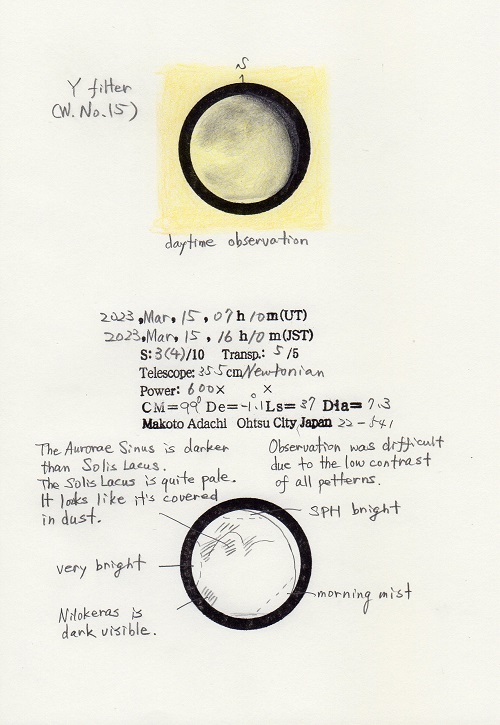 S
Y filter
(W. No. 15)
daytime observation
2023, Mar, 15, 07 h 10 m (UT)
2023, Mar, 15, 16 h 10 m (JST)
S: 3(4)/10 Transp.: 5 /5
Telescope: 35.5cm Newtonian
Power: 600x x
CM=99° De=-1.1 Ls=37 Dia=7.3
Makoto Adachi Ohtsu City Japan 22-541
The Aurorae Sinus is darker
than Solis Lacus.
The Solis Lacus is quite pale.
It looks like it's covered
in dust.
Observation was difficult
due to the low contrast
of all petterns.
SPH bright
very bright
morning mist
Nilokeras is
dark visible.